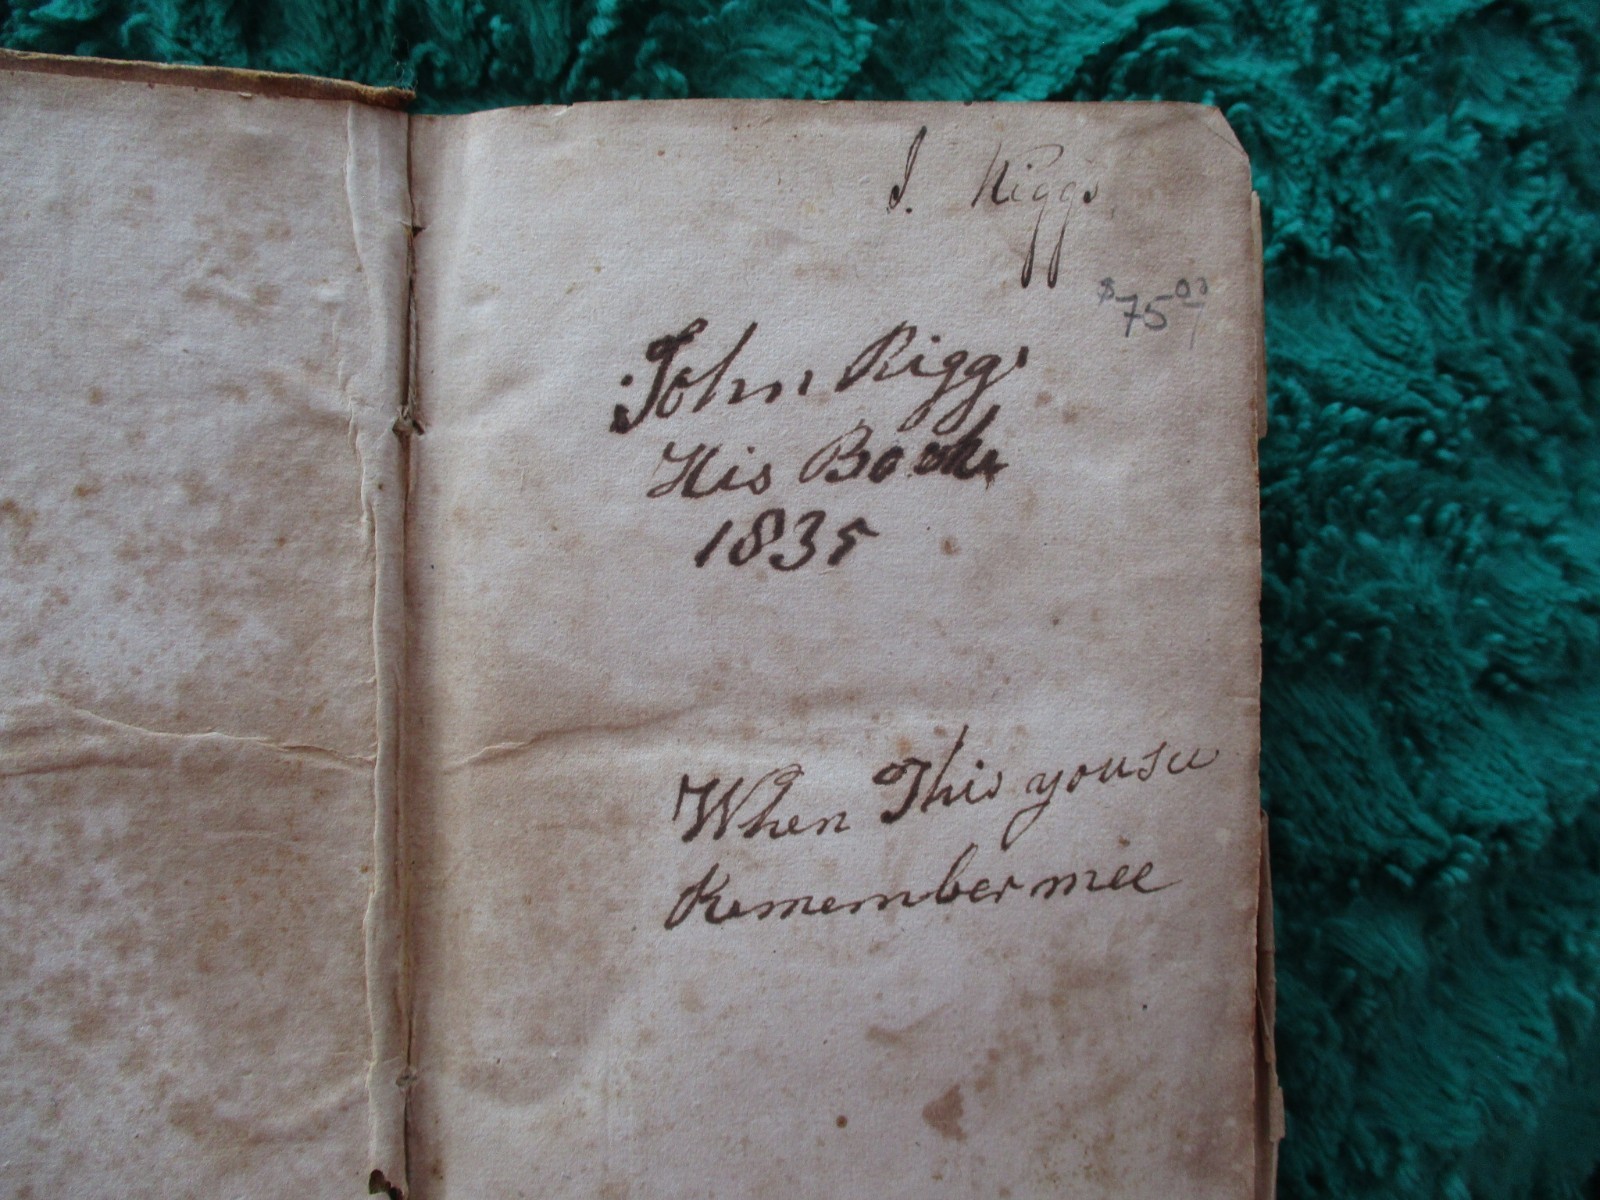 J. Riggs
$75.00
John Riggs
His Book
1835
When This you see
Remember mee